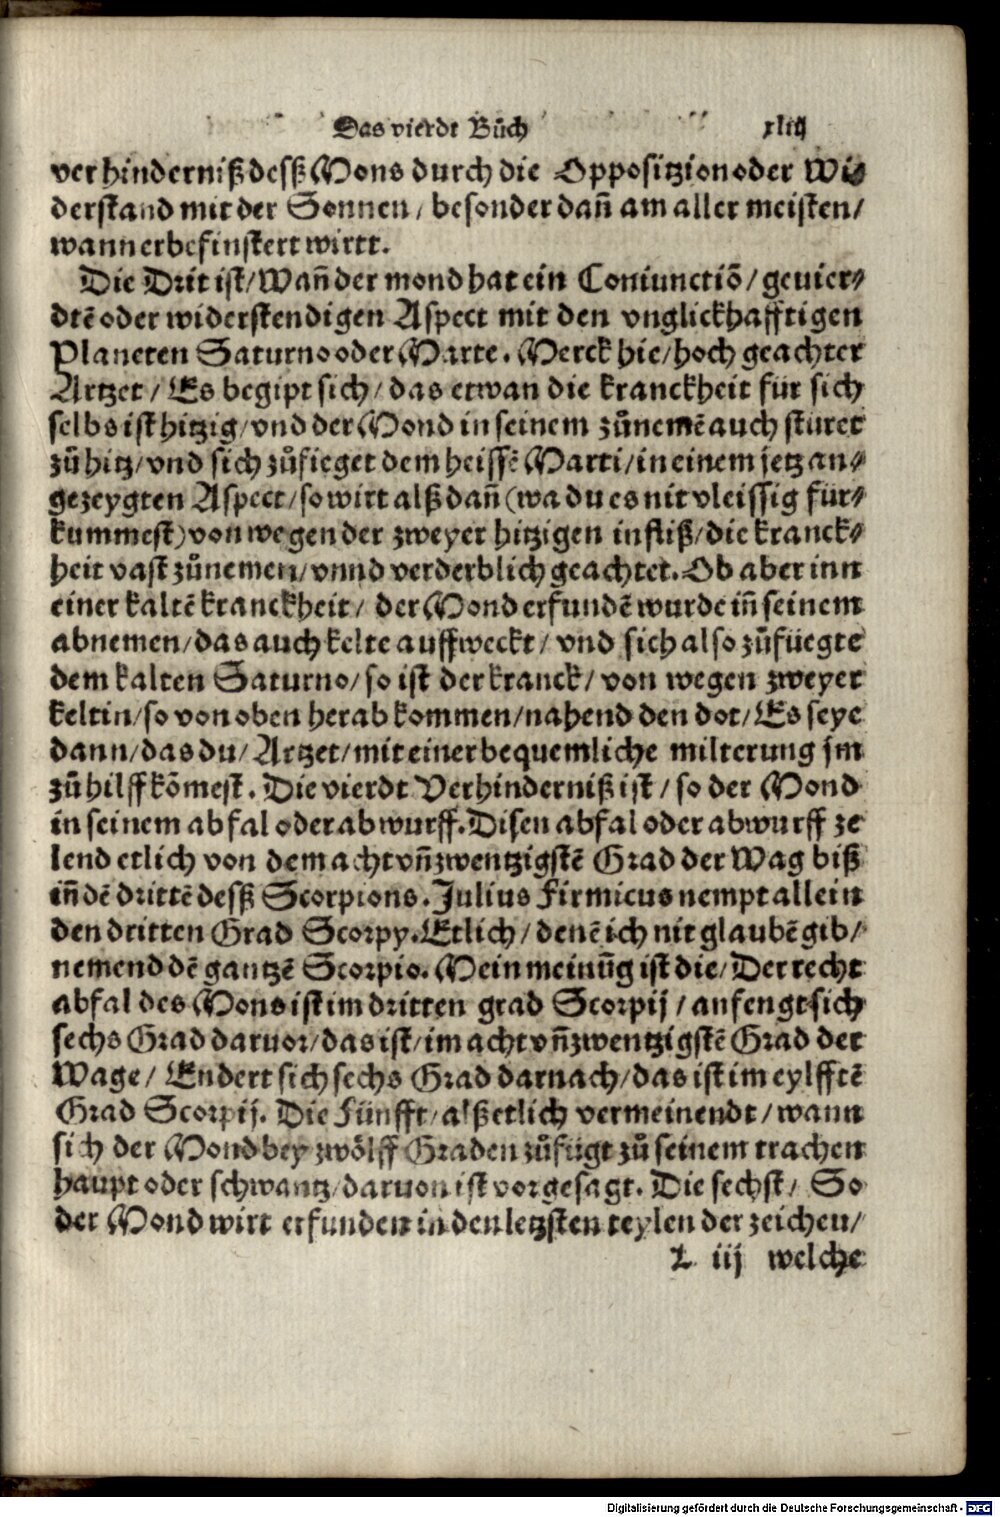 Das vierdt Bůch xliij
verhinderniß desß Mons durch die Opposition oder Wi-
derstand mit der Sonnen / besonder dañ am aller meisten /
wann er befinstert wirtt.
Die Drit ist / Wañ der mond hat ein Coniunctiõ / geuier-
dtẽ oder widerstendigen Aspect mit den vnglickhafftigen
Planeten Saturno oder Marte. Merck hie / hoch geachter
Artzet / Es begipt sich / das etwan die kranckheit für sich
selbs ist hitzig / vnd der Mond in seinem zůnemẽ auch stüret
zů hitz / vnd sich zůfieget dem heissẽ Marti / in einem jetz an-
gezeygten Aspect / so wirt alß dañ (wa du es nit vleissig für-
kummest) von wegen der zweyer hitzigen infliß / die kranck-
heit vast zůnemen / vnnd verderblich geachtet. Ob aber inn
einer kaltẽ kranckheit / der Mond erfundẽ wurde iñ seinem
abnemen / das auch kelte auffweckt / vnd sich also zůfüegte
dem kalten Saturno / so ist der kranck / von wegen zweyer
keltin / so von oben herab kommen / nahend den dot / Es seye
dann / das du / Artzet / mit einer bequemliche milterung jm
zů hilff kõmest. Die vierdt Verhinderniß ist / so der Mond
in seinem abfal oder abwurff. Disen abfal oder abwurff ze
lend etlich von dem acht vñ zwentzigstẽ Grad der Wag biß
iñ dẽ drittẽ desß Scorpions. Julius Firmicus nempt allein
den dritten Grad Scorpy. Etlich / denẽ ich nit glaubẽ gib /
nemend dẽ gantzẽ Scorpio. Mein meinũg ist die / Der recht
abfal des Mons ist im dritten grad Scorpij / anfengt sich
sechs Grad daruor / das ist / im acht vñ zwentzigstẽ Grad der
Wage / Endert sich sechs Grad darnach / das ist im eylfftẽ
Grad Scorpij. Die Fünfft / alß etlich vermeinendt / wann
sich der Mond bey zwölff Graden zůfügt zů seinem trachen
haupt oder schwantz / daruon ist vorgesagt. Die sechst / So
der Mond wirt erfunden in den letzsten teylen der zeichen /
L iij welche
Digitalisierung gefördert durch die Deutsche Forschungsgemeinschaft - DFG